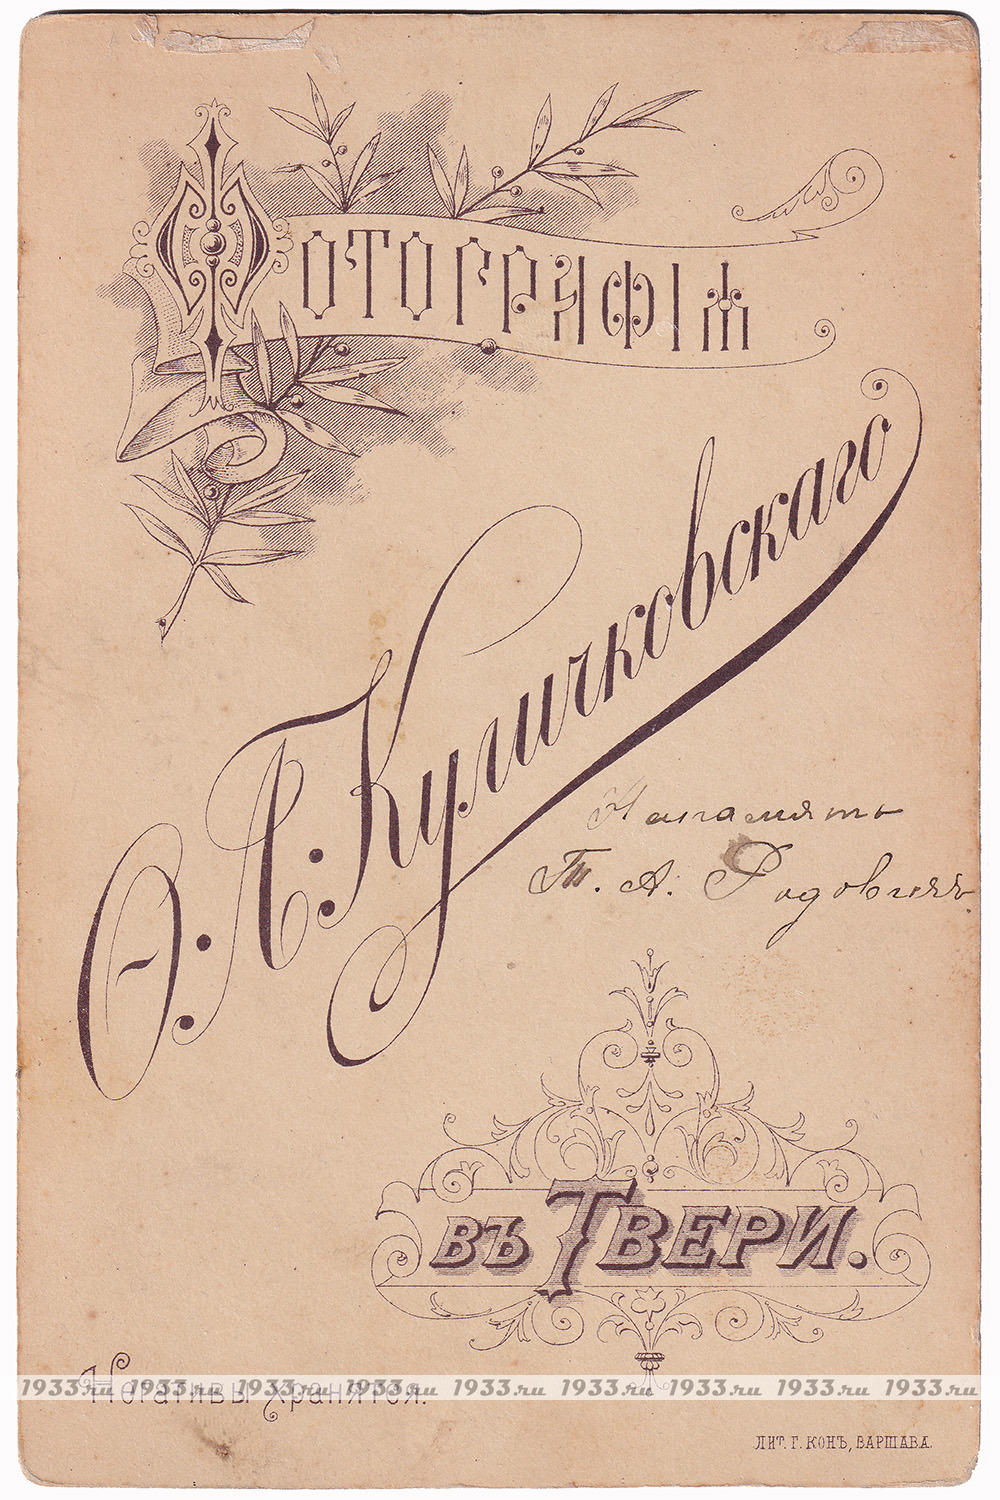 Фотографія
Ѳ. Л. Куличковскаго
На память
Т. А.
въ Твери.
Негативы хранятся.
1933.ru 1933.ru 1933.ru 1933.ru 1933.ru 1933.ru 1933.ru 1933.ru 1933.ru
ЛИТ. Г. КОНЪ, ВАРШАВА.